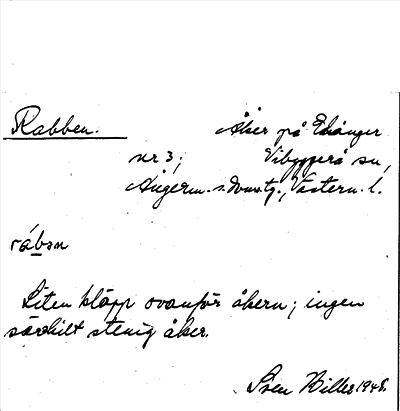 Rabben. Åker på Edånger
nr 3, Vibyggerå sn,
Ångerm. s. domsg., Västern. l.
rábən
Liten kläpp ovanför åkern; ingen
särskilt stenig åker.
Sven Billes 1948.